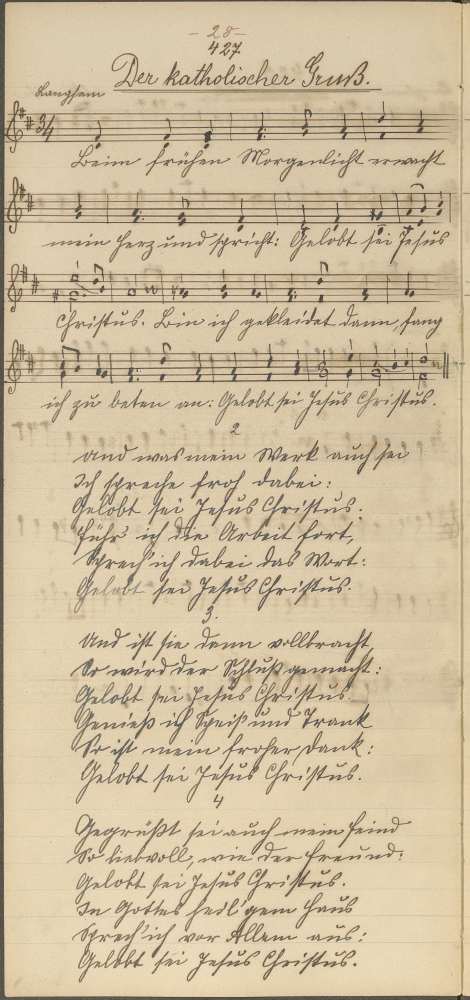 - 28 -
427
Der katholischer Gruß.
Langsam
3/4
Beim frühen Morgenlicht erwacht
mein Herz und spricht: Gelobt sei Jesus
Christus. Bin ich gekleidet dann, fang
ich zu beten an: Gelobt sei Jesus Christus.
2
und was mein Werk auch sei
Ich spreche froh dabei:
Gelobt sei Jesus Christus.
Führ' ich die Arbeit fort,
Sprech' ich dabei das Wort:
Gelobt sei Jesus Christus.
3.
Und ist sie dann vollbracht,
So wird der Schluß gemacht:
Gelobt sei Jesus Christus
Genieß ich Speis und Trank
So ist mein froher Dank:
Gelobt sei Jesus Christus.
4
Gegrüßt sei auch mein Feind
So liebvoll, wie der Freund:
Gelobt sei Jesus Christus.
In Gottes heil'gem Haus
Sprech' ich vor Allem aus:
Gelobt sei Jesus Christus.